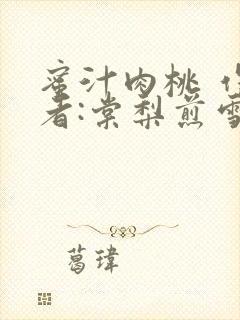 蜜汁肉桃 作
者:棠梨煎雪
葛瑋